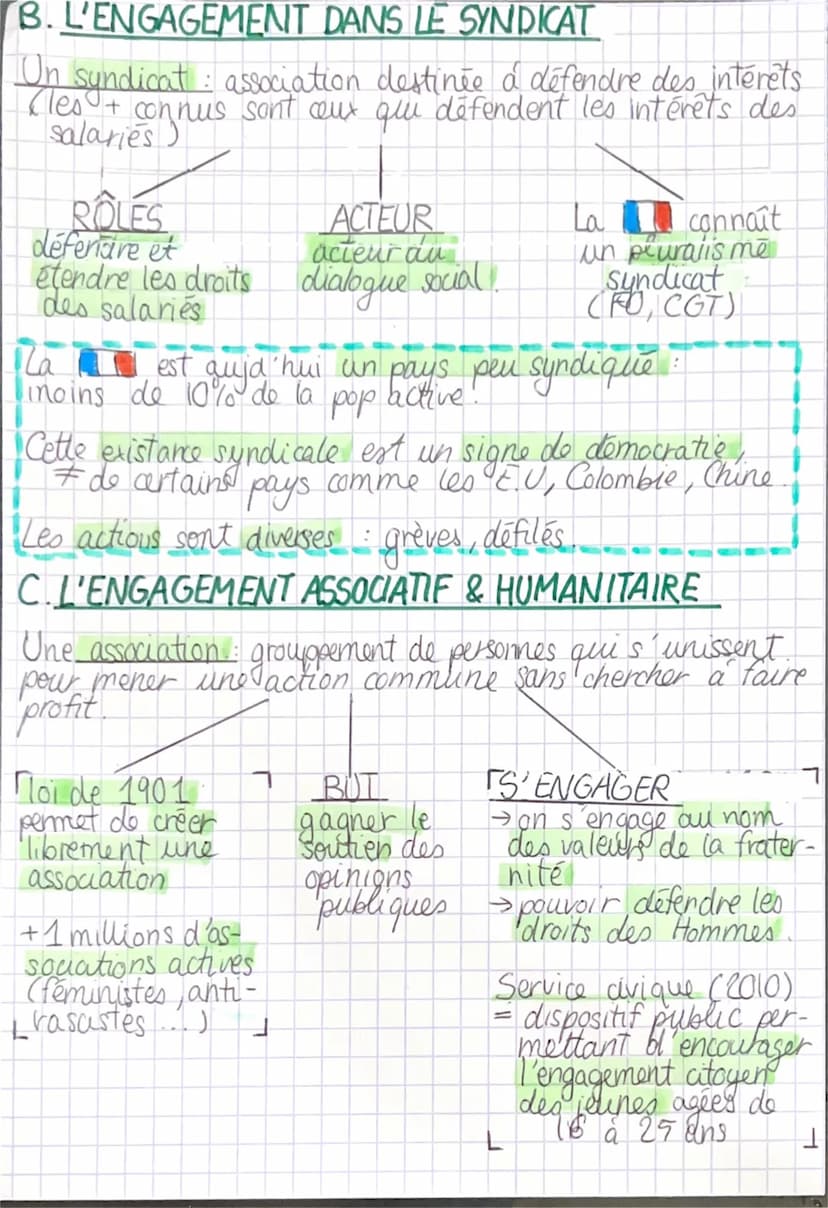 B. L'ENGAGEMENT DANS LE SYNDICAT
Un syndicat : association destinée à défendre des intérêts
(les + connus sont ceux qui défendent les intérêts des
salariés)
RÔLES
défendre et
étendre les droits
des salariés
ACTEUR
acteur du
dialogue social.
La connaît
un pluralisme
syndicat
(FO, CGT)
La est aujd'hui un pays peu syndiqué :
moins de 10% de la pop active.
Cette existance syndicale est un signe de démocratie,
≠ de certains pays comme les E.U, Colombie, Chine.
Les actions sont diverses : grèves, défilés.
C. L'ENGAGEMENT ASSOCIATIF & HUMANITAIRE
Une association : grouppement de personnes qui s'unissent
pour mener une action commune sans chercher à faire
profit.
loi de 1901
permet de créer
librement une
association
+1 millions d'as-
sociations actives
(féministes, anti-
rasastes ...)
BUT
gagner le
soutien des
opinions
publiques
S'ENGAGER
→ on s'engage au nom
des valeurs de la frater-
nité
→ pouvoir défendre les
droits des Hommes.
Service civique (2010)
= dispositif public per-
mettant d'encourager
l'engagement citoyen
des jeunes agées de
16 à 25 ans